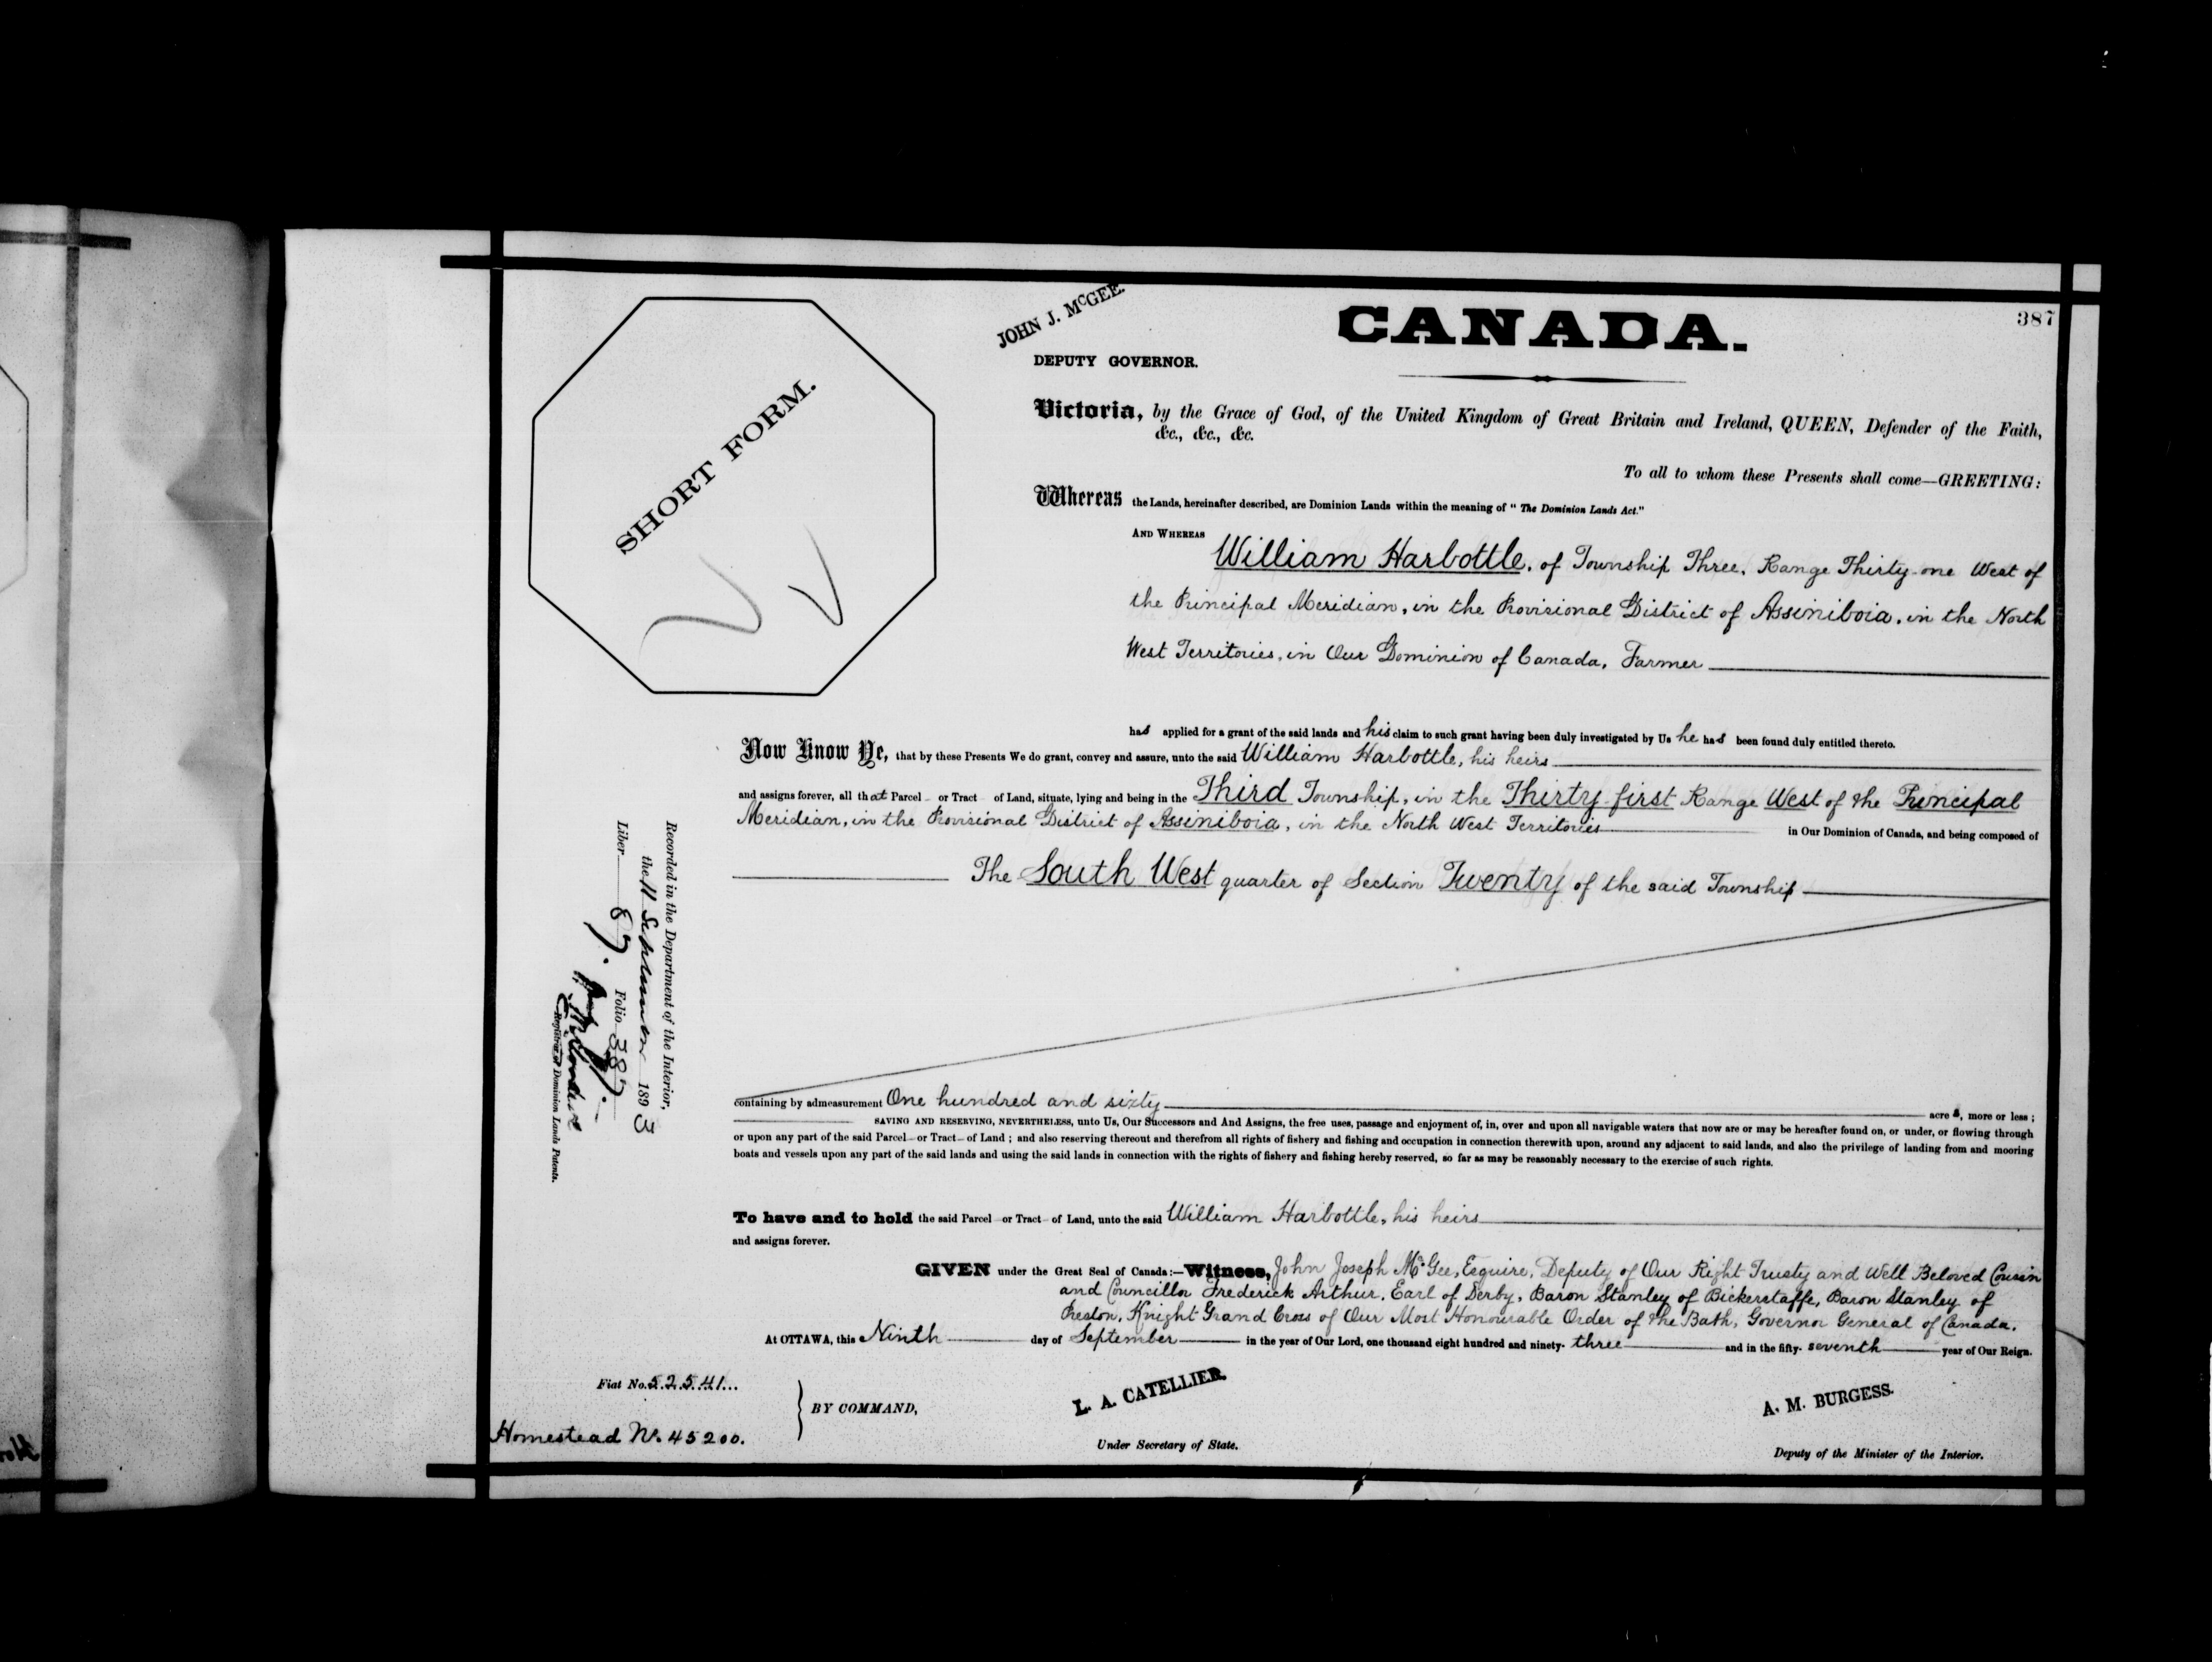 387
JOHN J. McGEE.
DEPUTY GOVERNOR.
CANADA.
SHORT FORM.
Victoria, by the Grace of God, of the United Kingdom of Great Britain and Ireland, QUEEN, Defender of the Faith,
&c., &c., &c.
To all to whom these Presents shall come—GREETING:
Whereas the Lands, hereinafter described, are Dominion Lands within the meaning of "The Dominion Lands Act."
AND WHEREAS
William Harbottle, of Township Three, Range Thirty-one West of
the Principal Meridian, in the Provisional District of Assiniboia, in the North
West Territories, in Our Dominion of Canada, Farmer
has applied for a grant of the said lands and his claim to such grant having been duly investigated by Us he has been found duly entitled thereto.
Now Know Ye, that by these Presents We do grant, convey and assure, unto the said William Harbottle, his heirs
and assigns forever, all that Parcel or Tract of Land, situate, lying and being in the Third Township, in the Thirty-first Range West of the Principal
Meridian, in the Provisional District of Assiniboia, in the North West Territories in Our Dominion of Canada, and being composed of
The South West quarter of Section Twenty of the said Township
containing by admeasurement One hundred and sixty acres, more or less;
SAVING AND RESERVING, NEVERTHELESS, unto Us, Our Successors and And Assigns, the free uses, passage and enjoyment of, in, over and upon all navigable waters that now are or may be hereafter found on, or under, or flowing through
or upon any part of the said Parcel or Tract of Land; and also reserving thereout and therefrom all rights of fishery and fishing and occupation in connection therewith upon, around any adjacent to said lands, and also the privilege of landing from and mooring
boats and vessels upon any part of the said lands and using the said lands in connection with the rights of fishery and fishing hereby reserved, so far as may be reasonably necessary to the exercise of such rights.
To have and to hold the said Parcel or Tract of Land, unto the said William Harbottle, his heirs
and assigns forever.
GIVEN under the Great Seal of Canada:—Witness, John Joseph McGee, Esquire, Deputy of Our Right Trusty and Well Beloved Cousin
and Councillor Frederick Arthur, Earl of Derby, Baron Stanley of Bickerstaffe, Baron Stanley of
Preston, Knight Grand Cross of Our Most Honourable Order of the Bath, Governor General of Canada.
At OTTAWA, this Ninth day of September in the year of Our Lord, one thousand eight hundred and ninety-three and in the fifty-seventh year of Our Reign.
Fiat No. 52541...
Homestead No. 45200.
BY COMMAND,
L. A. CATELLIER.
Under Secretary of State.
A. M. BURGESS.
Deputy of the Minister of the Interior.
Recorded in the Department of the Interior,
the 11 September 1893
Liber 87. Folio 387.
Registrar of Dominion Lands Patents.